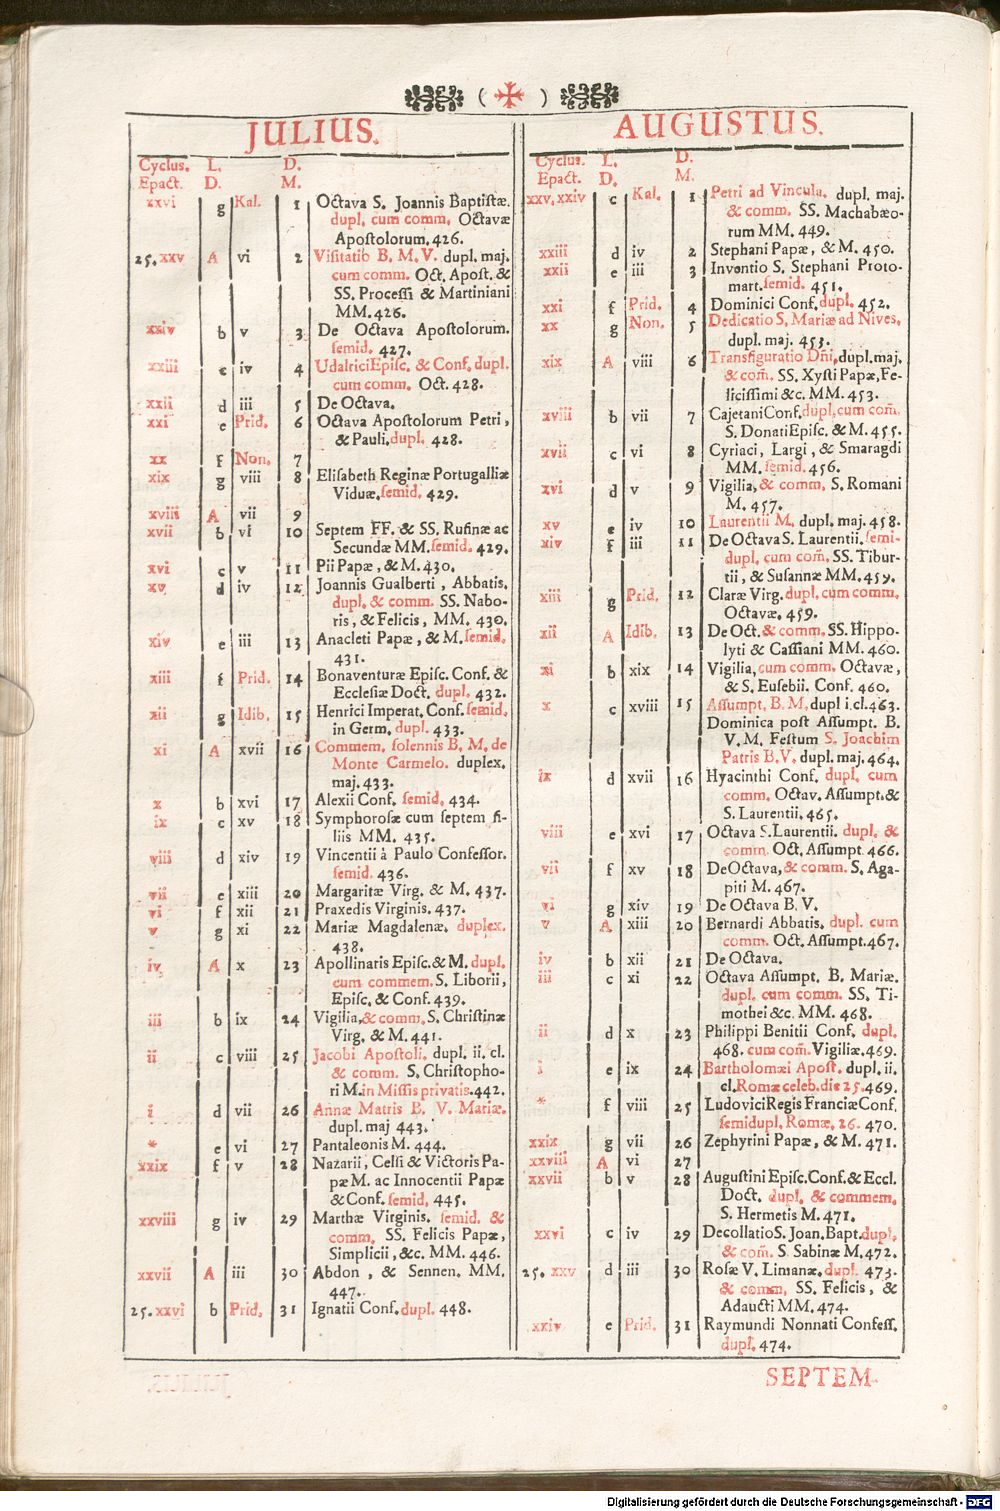 ( ✠ )
JULIUS.
Cyclus. L. D.
Epact. D. M.
xxvi g Kal. 1 Octava S. Joannis Baptiſtæ.
dupl. cum comm. Octavæ
Apoſtolorum. 426.
25. xxv A vi 2 Viſitatio B. M. V. dupl. maj.
cum comm. Oct. Apoſt. &
SS. Proceſſi & Martiniani
MM. 426.
xxiv b v 3 De Octava Apoſtolorum.
ſemid. 427.
xxiii c iv 4 Udalrici Epiſc. & Conf. dupl.
cum comm. Oct. 428.
xxii d iii 5 De Octava.
xxi e Prid. 6 Octava Apoſtolorum Petri,
& Pauli. dupl. 428.
xx f Non. 7
xix g viii 8 Eliſabeth Reginæ Portugalliæ
Viduæ, ſemid. 429.
xviii A vii 9
xvii b vi 10 Septem FF. & SS. Rufinæ ac
Secundæ MM. ſemid. 429.
xvi c v 11 Pii Papæ, & M. 430.
xv d iv 12 Joannis Gualberti, Abbatis.
dupl. & comm. SS. Nabo-
ris, & Felicis, MM. 430.
xiv e iii 13 Anacleti Papæ, & M. ſemid.
431.
xiii f Prid. 14 Bonaventuræ Epiſc. Conf. &
Eccleſiæ Doct. dupl. 432.
xii g Idib. 15 Henrici Imperat. Conf. ſemid.
in Germ. dupl. 433.
xi A xvii 16 Commem. ſolennis B. M. de
Monte Carmelo. duplex.
maj. 433.
x b xvi 17 Alexii Conf. ſemid. 434.
ix c xv 18 Symphoroſæ cum ſeptem fi-
liis MM. 435.
viii d xiv 19 Vincentii à Paulo Confeſſor.
ſemid. 436.
vii e xiii 20 Margaritæ Virg. & M. 437.
vi f xii 21 Praxedis Virginis. 437.
v g xi 22 Mariæ Magdalenæ. duplex.
438.
iv A x 23 Apollinaris Epiſc. & M. dupl.
cum commem. S. Liborii,
Epiſc. & Conf. 439.
iii b ix 24 Vigilia, & comm. S. Chriſtinæ
Virg. & M. 441.
ii c viii 25 Jacobi Apoſtoli. dupl. ii. cl.
& comm. S. Chriſtopho-
ri M. in Miſſis privatis. 442.
i d vii 26 Annæ Matris B. V. Mariæ.
dupl. maj 443.
* e vi 27 Pantaleonis M. 444.
xxix f v 28 Nazarii, Celſi & Victoris Pa-
pæ M. ac Innocentii Papæ
& Conf. ſemid. 445.
xxviii g iv 29 Marthæ Virginis. ſemid. &
comm. SS. Felicis Papæ,
Simplicii, &c. MM. 446.
xxvii A iii 30 Abdon, & Sennen. MM.
447.
25. xxvi b Prid. 31 Ignatii Conf. dupl. 448.
AUGUSTUS.
Cyclus. L. D.
Epact. D. M.
xxv, xxiv c Kal. 1 Petri ad Vincula. dupl. maj.
& comm. SS. Machabæo-
rum MM. 449.
xxiii d iv 2 Stephani Papæ, & M. 450.
xxii e iii 3 Inventio S. Stephani Proto-
mart. ſemid. 451.
xxi f Prid. 4 Dominici Conf. dupl. 452.
xx g Non. 5 Dedicatio S. Mariæ ad Nives.
dupl. maj. 453.
xix A viii 6 Transfiguratio Dñi, dupl. maj.
& com̃. SS. Xyſti Papæ, Fe-
liciſſimi &c. MM. 453.
xviii b vii 7 Cajetani Conf. dupl. cum com̃.
S. Donati Epiſc. & M. 455.
xvii c vi 8 Cyriaci, Largi, & Smaragdi
MM. ſemid. 456.
xvi d v 9 Vigilia, & comm. S. Romani
M. 457.
xv e iv 10 Laurentii M. dupl. maj. 458.
xiv f iii 11 De Octava S. Laurentii. ſemi-
dupl. cum com̃. SS. Tibur-
tii, & Suſannæ MM. 459.
xiii g Prid. 12 Claræ Virg. dupl. cum comm.
Octavæ. 459.
xii A Idib. 13 De Oct. & comm. SS. Hippo-
lyti & Caſſiani MM. 460.
xi b xix 14 Vigilia, cum comm. Octavæ,
& S. Euſebii. Conf. 460.
x c xviii 15 Aſſumpt. B. M. dupl i. cl. 463.
Dominica poſt Aſſumpt. B.
V. M. Feſtum S. Joachim
Patris B. V. dupl. maj. 464.
ix d xvii 16 Hyacinthi Conf. dupl. cum
comm. Octav. Aſſumpt. &
S. Laurentii. 465.
viii e xvi 17 Octava S. Laurentii. dupl. &
comm. Oct. Aſſumpt. 466.
vii f xv 18 De Octava, & comm. S. Aga-
piti M. 467.
vi g xiv 19 De Octava B. V.
v A xiii 20 Bernardi Abbatis. dupl. cum
comm. Oct. Aſſumpt. 467.
iv b xii 21 De Octava.
iii c xi 22 Octava Aſſumpt. B. Mariæ.
dupl. cum comm. SS. Ti-
mothei &c. MM. 468.
ii d x 23 Philippi Benitii Conf. dupl.
468. cum com̃. Vigiliæ. 469.
i e ix 24 Bartholomæi Apoſt. dupl. ii.
cl. Romæ celeb. die 25. 469.
* f viii 25 Ludovici Regis Franciæ Conf.
ſemidupl. Romæ, 26. 470.
xxix g vii 26 Zephyrini Papæ, & M. 471.
xxviii A vi 27
xxvii b v 28 Auguſtini Epiſc. Conf. & Eccl.
Doct. dupl. & commem.
S. Hermetis M. 471.
xxvi c iv 29 Decollatio S. Joan. Bapt. dupl.
& com̃. S. Sabinæ M. 472.
25. xxv d iii 30 Roſæ V. Limanæ. dupl. 473.
& comm. SS. Felicis, &
Adaucti MM. 474.
xxiv e Prid. 31 Raymundi Nonnati Confeſſ.
dupl. 474.
SEPTEM-
Digitalisierung gefördert durch die Deutsche Forschungsgemeinschaft - DFG